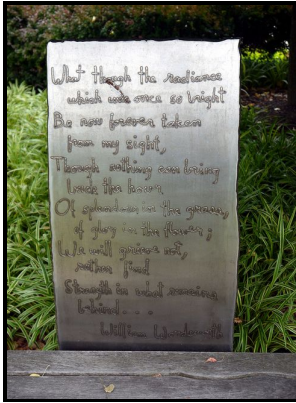 What though the radiance
which was once so bright
Be now forever taken
from my sight,
Though nothing can bring
back the hour
Of splendour in the grass,
of glory in the flower;
We will grieve not,
rather find
Strength in what remains
behind...
William Wordsworth